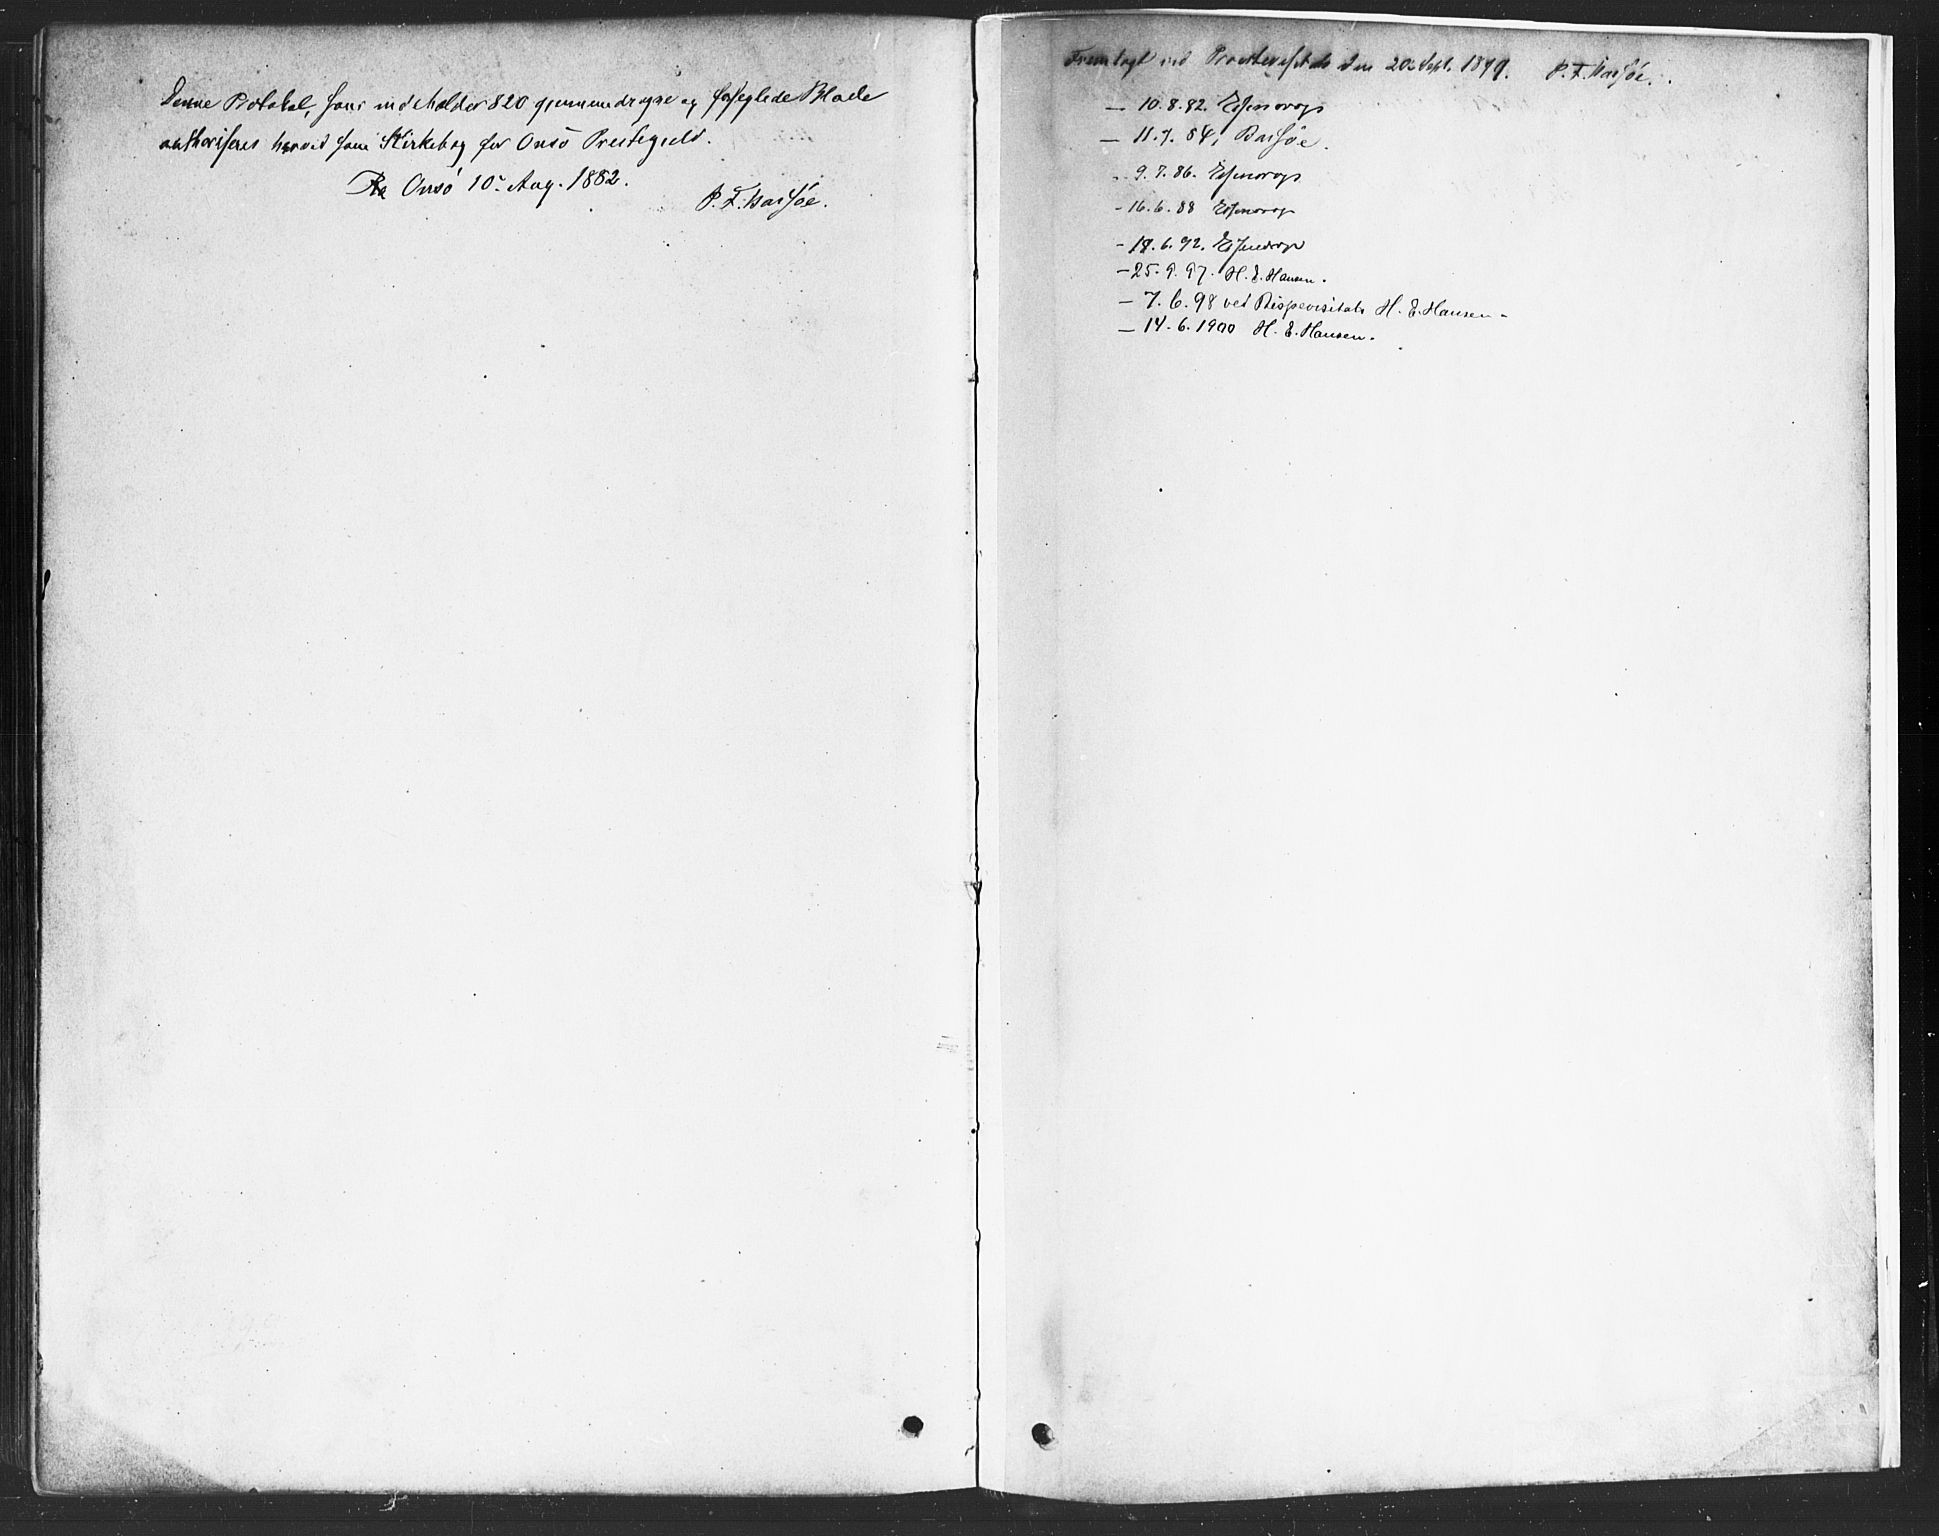 Denne Protokol, som indeholder 820 gjennemdragne og forseglede Blade
authoriseres herved som Kirkebog for Onsö Prestegjeld.
Onsö 10. Aug. 1882.
P. F. Bassøe.
Fremlagt ved Provstevisitats den 20. Sept. 1879. P. F. Bassøe.
— 10.8.82.
— 11.7.84, Bassøe.
9.7.86.
- 16.6.88
- 18.6.92.
- 25.9.97. H. E. Hansen.
— 7.6.98 ved Bispevisitats H. E. Hansen -
— 14.6.1900 H. E. Hansen.